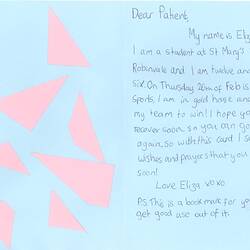 Dear Patient,
My name is Eliz
I am a student at St Mary?
Robinvale and I am twelve and
six. On Thursday 26th of Feb is
Sports, I am in gold house and
my team to win! I hope yo
recover soon so you can go
again, So with this card I se
wishes and prayers that you
soon!
Love Eliza xoxo
P.S. This is a book mark for yo
get good use out of it.